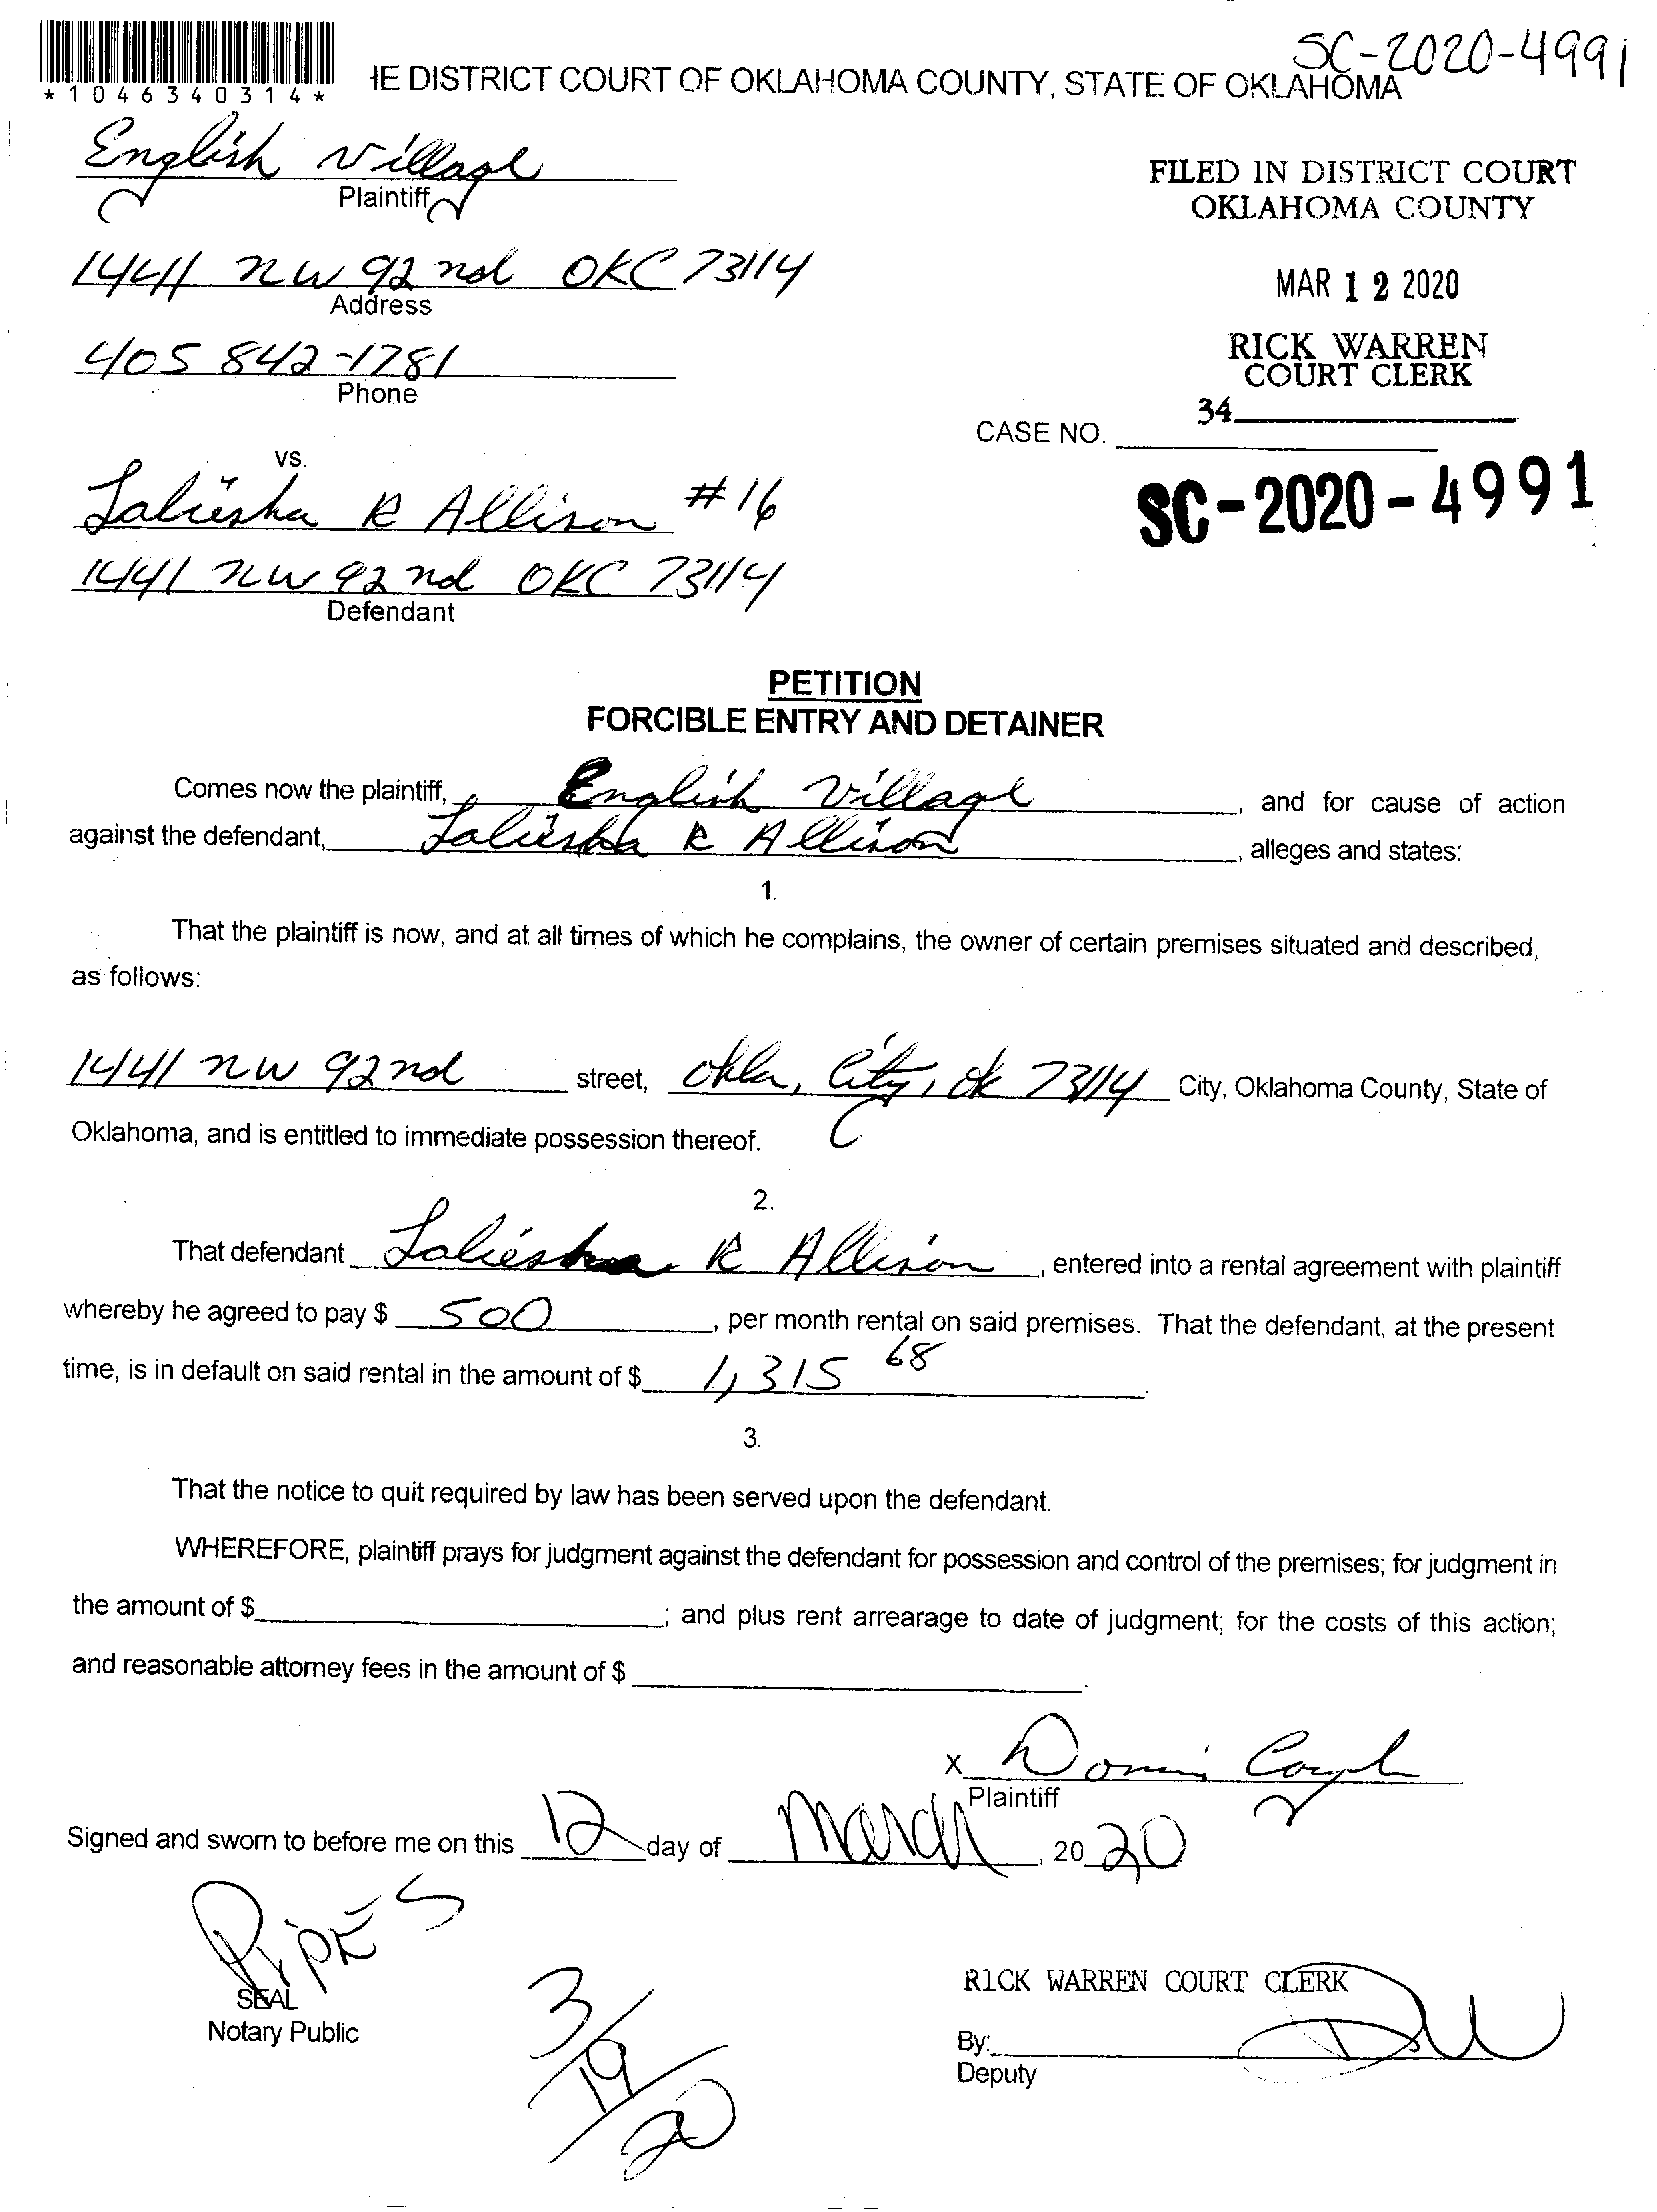 SC-2020-4991
*1046340314*
HE DISTRICT COURT OF OKLAHOMA COUNTY, STATE OF OKLAHOMA
English Village
Plaintiff
FILED IN DISTRICT COURT
OKLAHOMA COUNTY
1441 NW 92nd OKC 73114
Address
MAR 12 2020
405 842-1781
Phone
RICK WARREN
COURT CLERK
34
CASE NO.
vs.
Laliesha R Allison #16
SC-2020-4991
1441 NW 92nd OKC 73114
Defendant
PETITION
FORCIBLE ENTRY AND DETAINER
Comes now the plaintiff, English Village, and for cause of action
against the defendant, Laliesha R Allison, alleges and states:
1.
That the plaintiff is now, and at all times of which he complains, the owner of certain premises situated and described,
as follows:
1441 NW 92nd street, Okla, City, Ok 73114 City, Oklahoma County, State of
Oklahoma, and is entitled to immediate possession thereof.
2.
That defendant Laliesha R Allison, entered into a rental agreement with plaintiff
whereby he agreed to pay $ 500, per month rental on said premises. That the defendant, at the present
time, is in default on said rental in the amount of $ 1,315 68.
3.
That the notice to quit required by law has been served upon the defendant.
WHEREFORE, plaintiff prays for judgment against the defendant for possession and control of the premises; for judgment in
the amount of $ ; and plus rent arrearage to date of judgment; for the costs of this action;
and reasonable attorney fees in the amount of $ .
X
Plaintiff
Signed and sworn to before me on this 12 day of March, 20 20
PiPES
SEAL
Notary Public
3/19/20
RICK WARREN COURT CLERK
By:
Deputy